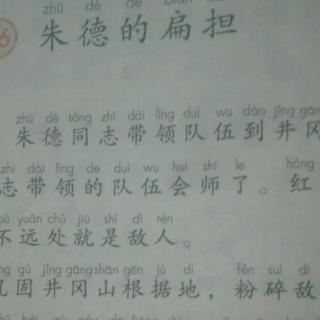 zhū dé de biǎn dan
6 朱德的扁担
zhū dé tóng zhì dài lǐng duì wu dào jǐng gāng
朱德同志带领队伍到井冈
zhì dài lǐng de duì wu huì shī le hóng
志带领的队伍会师了。红
bù yuǎn chù jiù shì dí rén
不远处就是敌人。
gǒng gù jǐng gāng shān gēn jù dì fěn suì dí
巩固井冈山根据地，粉碎敌